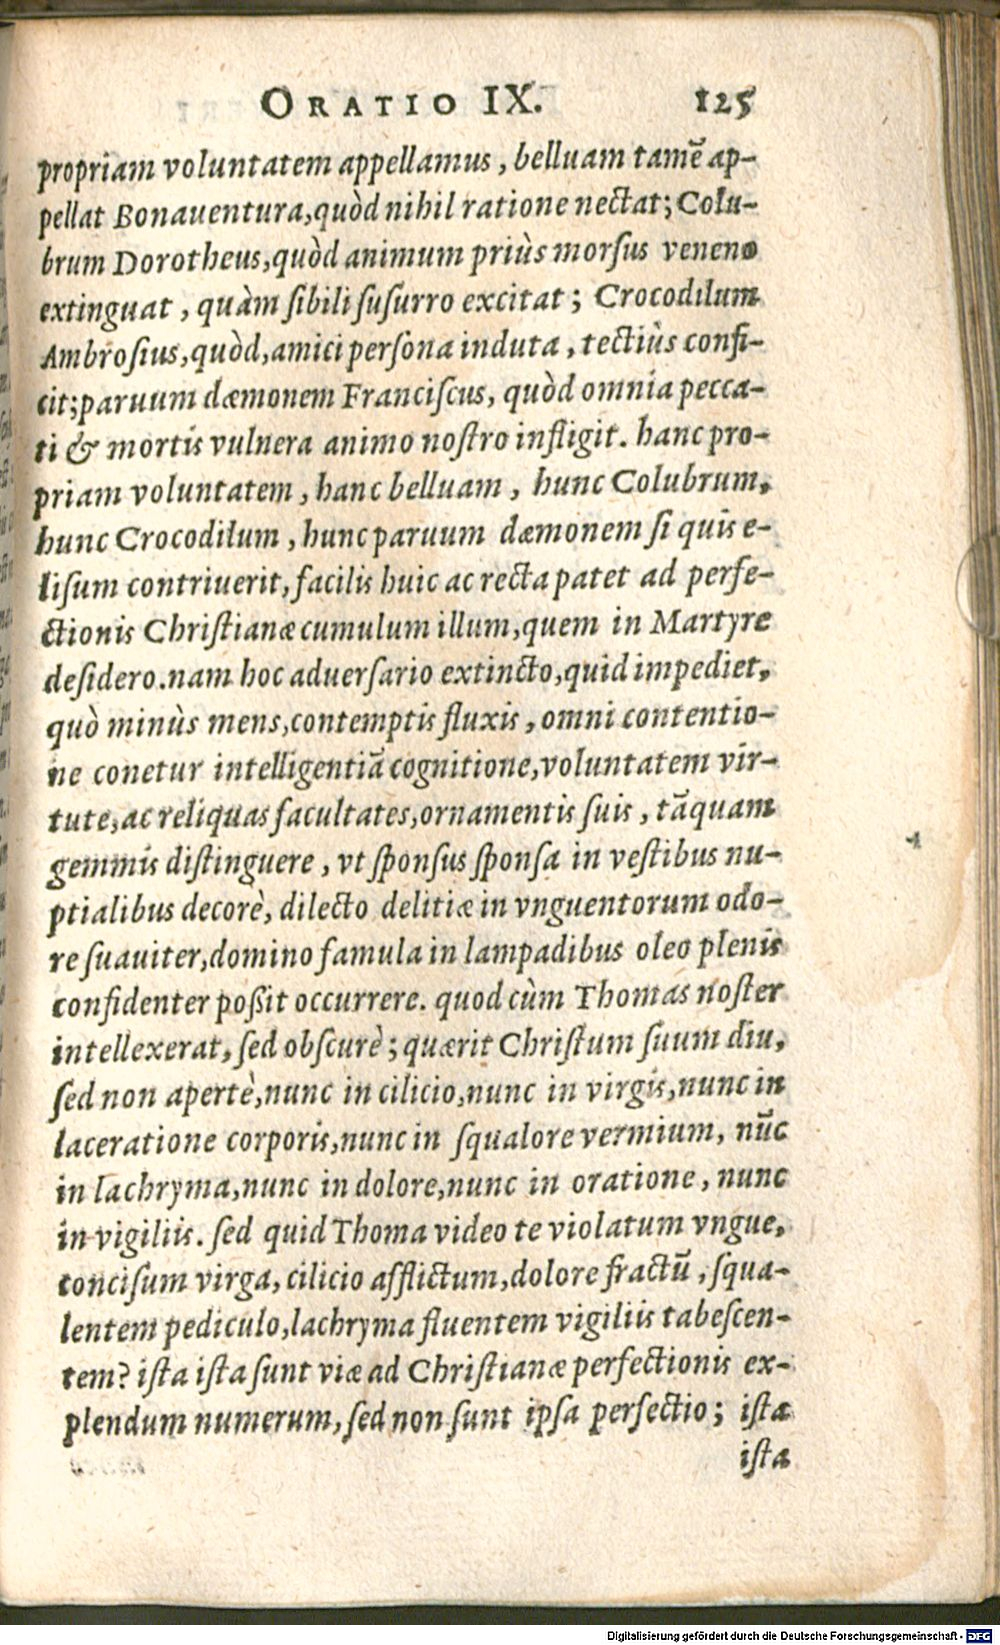 ORATIO IX. 125
propriam voluntatem appellamus, belluam tamē ap-
pellat Bonauentura, quòd nihil ratione nectat; Colu-
brum Dorotheus, quòd animum priùs morsus veneno
extinguat, quàm sibili susurro excitat; Crocodilum
Ambrosius, quòd, amici persona induta, tectiùs confi-
cit; paruum dæmonem Franciscus, quòd omnia pecca-
ti & mortis vulnera animo nostro infligit. hanc pro-
priam voluntatem, hanc belluam, hunc Colubrum,
hunc Crocodilum, hunc paruum dæmonem si quis e-
lisum contriuerit, facilis huic ac recta patet ad perfe-
ctionis Christianæ cumulum illum, quem in Martyre
desidero. nam hoc aduersario extincto, quid impediet,
quò minùs mens, contemptis fluxis, omni contentio-
ne conetur intelligentiā cognitione, voluntatem vir-
tute, ac reliquas facultates, ornamentis suis, tāquam
gemmis distinguere, vt sponsus sponsa in vestibus nu-
ptialibus decorè, dilecto delitiæ in vnguentorum odo-
re suauiter, domino famula in lampadibus oleo plenis
confidenter poßit occurrere. quod cùm Thomas noster
intellexerat, sed obscurè; quærit Christum suum diu,
sed non apertè, nunc in cilicio, nunc in virgis, nunc in
laceratione corporis, nunc in squalore vermium, nūc
in lachryma, nunc in dolore, nunc in oratione, nunc
in vigiliis. sed quid Thoma video te violatum vngue,
concisum virga, cilicio afflictum, dolore fractū, squa-
lentem pediculo, lachryma fluentem vigiliis tabescen-
tem? ista ista sunt viæ ad Christianæ perfectionis ex-
plendum numerum, sed non sunt ipsa perfectio; ista
ista
Digitalisierung gefördert durch die Deutsche Forschungsgemeinschaft - DFG